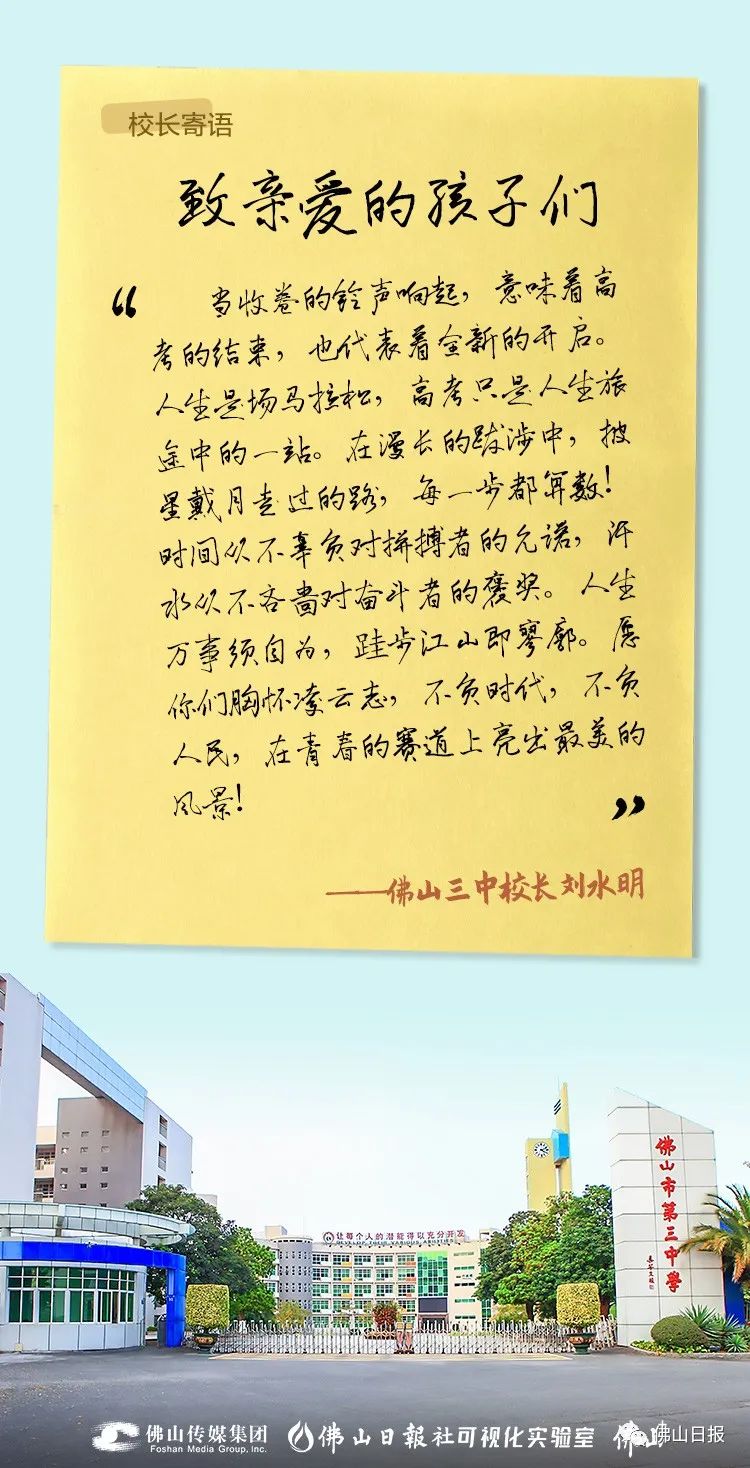 校长寄语
致亲爱的孩子们
“ 当收卷的铃声响起，意味着高
考的结束，也代表着全新的开启。
人生是场马拉松，高考只是人生旅
途中的一站。在漫长的跋涉中，披
星戴月走过的路，每一步都算数！
时间从不辜负对拼搏者的允诺，汗
水从不吝啬对奋斗者的褒奖。人生
万事须自为，跬步江山即寥廓。愿
你们胸怀凌云志，不负时代，不负
人民，在青春的赛道上亮出最美的
风景！ ”
——佛山三中校长刘水明
让每个人的潜能得以充分开发
DEVELOP THEIR VARIOUS ABILITIES
佛山市第三中學
佛山传媒集团
Foshan Media Group, Inc.
佛山日报社可视化实验室
佛山
佛山日报